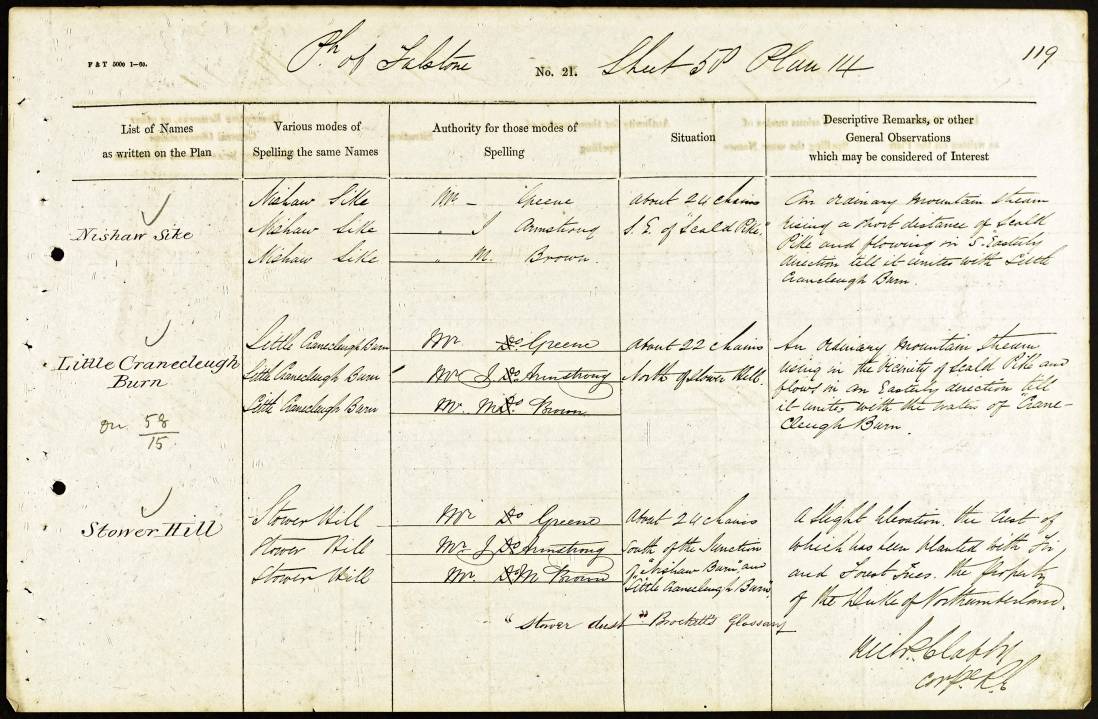 Ph of Falstone No. 21. Sheet 58 Plan 14
119
F & T 5000 1—60.
List of Names
as written on the Plan
Various modes of
Spelling the same Names
Authority for those modes of
Spelling
Situation
Descriptive Remarks, or other
General Observations
which may be considered of Interest
Nishaw Sike
Nishaw Sike
Nishaw Sike
Nishaw Sike
Mr — Greene
„ J Armstrong
„ M. Brown
About 24 chains
S. E. of "Scald Pike"
An ordinary Mountain Stream
rising a short distance of Scald
Pike and flowing in S. Easterly
direction till it unites with Little
Cranecleugh Burn.
Little Cranecleugh
Burn
on 58
15.
Little Cranecleugh Burn
Little Cranecleugh Burn
Little Cranecleugh Burn
Mr Do Greene
Mr J Do Armstrong
Mr M Do Brown
About 22 chains
North of Stower Hill.
An Ordinary Mountain Stream
rising in the Vicinity of Scald Pike and
flows in an Easterly direction till
it unites with the waters of "Crane-
cleugh Burn.
Stower Hill
Stower Hill
Stower Hill
Stower Hill
Mr Do Greene
Mr J Do Armstrong
Mr Do M Brown
About 24 chains
South of the Junction
of "Nishaw Burn" and
"Little Cranecleugh Burn"
"Stower dust" Brockett's Glossary
A slight elevation. the Crest of
which has been planted with Fir
and Forest Trees. the Property
of the Duke of Northumberland.
Corpl R.E